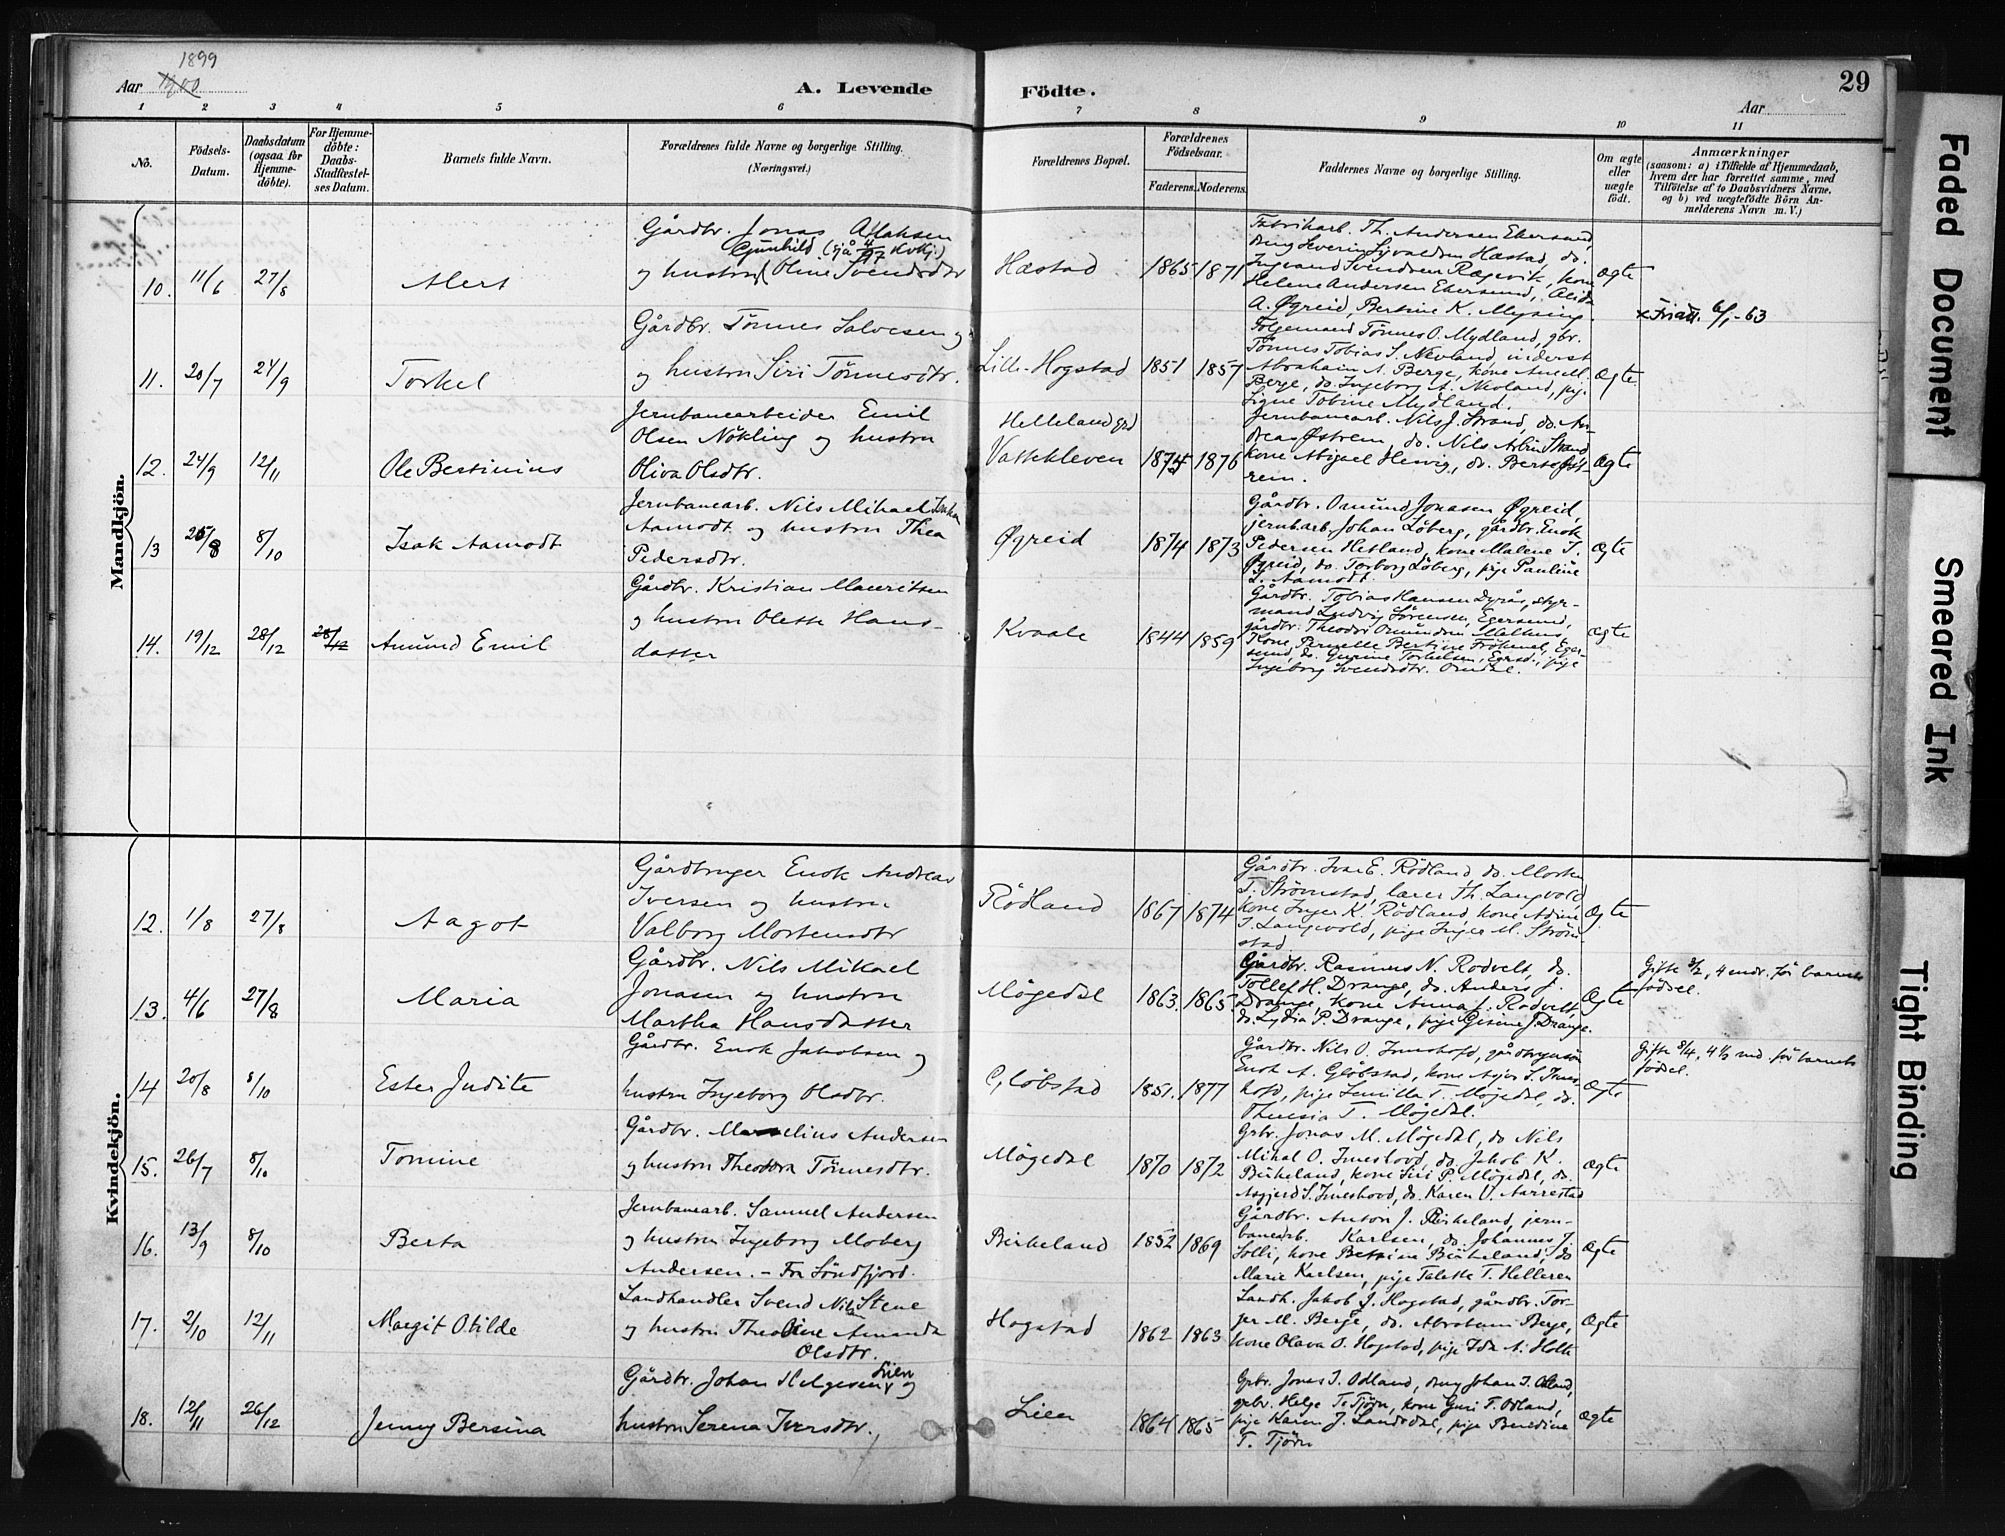 1899
Aar 1900
A. Levende
Födte.
29
Aar
1 2 3 4 5 6 7 8 9 10 11
No.
Födsels-
Datum.
Daabsdatum
(ogsaa for
Hjemme-
döbte).
For Hjemme-
döbte:
Daabs-
Stadfæstel-
ses Datum.
Barnets fulde Navn.
Forældrenes fulde Navne og borgerlige Stilling.
(Næringsvei.)
Forældrenes Bopæl.
Forældrenes
Födselsaar.
Faderens. Moderens.
Faddernes Navne og borgerlige Stilling.
Om ægte
eller
uægte
födt.
Anmærkninger
(saasom: a) i Tilfælde af Hjemmedaab,
hvem der har forrettet samme, med
Tilföielse af to Daabsvidners Navne,
og b) ved uægtefödte Börn An-
melderens Navn m. V.)
Mandkjön.
10. 11/6 27/8
Alert
Gårdbr. Jonas
Gunhild
og hustru Oline Svendsdtr
Hæstad
1865 1871
Fabrikarb. Th. Andersen Ekersund,
Sigvaldsen Hæstad, do.
Ingvand Svendsen Rægevik, kone
Helene Andersen Ekersund,
A. Øgreid, Bertine K. Mysing.
ægte
6/1-63
11. 20/7 24/9
Torkel
Gårdbr. Tønnes Salvesen
og hustru Siri Tønnesdtr.
Lille-Hogstad
1851 1857
Følgemand Tønnes O. Mydland, gbr.
Tønnes Tobias S. Nevland, inderst
Abraham A. Berge, kone Ane M.
Berge, do. Ingeborg A. Nevland, pige
Signe Tobine Mydland.
Ægte
12. 24/9 12/11
Ole Bertinius
Jernbanearbeider Emil
Olsen Nøkling og hustru
Oliva Olsdtr.
Helleland grd
Vattekleven
1874 1876
Jernbanearb. Nils J. Strand, do. An-
dreas Østrem, do. Nils Strand
kone Abigael Hesvig, do. Berta Øst-
rem.
Ægte
13 25/8 8/10
Isak Aamodt
Jernbanearb. Nils Mikael
Aamodt og hustru Thea
Pedersdtr.
Øgreid
1874 1873
Gårdbr. Omund Jonasen Øgreid,
jernb.arb. Johan Løberg, gårdbr. Enok
Pedersen Hetland, kone Malene T.
Øgreid, do. Torborg Løberg, pige Pauline
I. Aamodt.
ægte
14. 19/12 28/12 28/12
Amund Emil
Gårdbr. Kristian Mauritsen
og hustru Olette Hans-
datter
Kvaale
1844 1859
Gårdbr. Tobias Hansen Dyrås, styr-
mand Ludvig Sörensen, Egersund,
gårdbr. Theodor Omundsen
Kone Pernelle Bertine Eger-
sund, do. Gurine Torkelsen, Egersd., pige
Ingeborg Svendsdtr. Omdal.
ægte
Kvindekjön.
12. 1/8 27/8
Aagot
Gårdbruger Enok Andreas
Iversen og hustru
Valborg Mortensdtr
Rødland
1867 1874
Gårdbr. Ivar E. Rödland, do. Morten
T. Strömstad, lærer Th. Langvold,
kone Inger K. Rödland, kone
T. Langvold, pige Inger M. Ström-
stad
ægte
13. 4/6 27/8
Maria
Gårdbr. Nils Mikael
Jonasen og hustru
Martha Hansdatter
Møgedal
1863. 1865.
Gårdbr. Rasmus N. Rodvelt, do.
Tollef H. Drange, do. Anders J.
Drange, kone Anna J. Rodvelt,
do. Lydia P. Drange, pige Gesine J. Drange.
Ægte
Gifte 3/2, 4 mdr. før barnets
fødsel.
14 20/8 8/10
Ester Judite
Gårdbr. Enok Jakobsen og
hustru Ingeborg Olsdtr.
Gløbstad
1851. 1877
Gårdbr. Nils O. Imeshofd, gårdbrugersön
Enok A. Gløbstad, kone S. Imes-
hofd, pige T. Møgedal, do.
Theresia T. Møgedal.
ægte
Gifte 8/4, 4 1/2 md. før barnets
fødsel.
15. 26/7 8/10
Tomine
Gårdbr. Andersen
og hustru Theodora Tönnesdtr.
Møgedal
1870 1872
Grbr. Jonas M. Møgedal, do Nils
Mikal O. Imeshovd, do. Jakob K.
Birkeland, kone Siri P. Møgedal, do.
Asgjerd S. Imeshovd, do. Karen V. Aarrestad
ægte
16. 13/9 8/10
Berta
Jernbanearb. Samuel Andersen
og hustru Ingeborg Moberg
Andersen. – Fra Söndfjord.
Birkeland
1852 1869
Gårdbr. Anton J. Birkeland, jern-
banearb. Karlsen, do. Johannes J.
Solli, kone Bertine Birkeland, do
Marie Karlsen, pige Talette T. Helleren
Ægte
17. 2/10 12/11
Margit Otilde
Landhandler Svend Nils Stene
og hustru Amanda
Olsdtr.
Hogstad
1862 1863
Landh. Jakob J. Hogstad, gårdbr. Tor-
ger M. Berge, do. Abraham Berge,
kone Olava O. Hogstad, pige Ida A. Holte
Ægte
18. 12/11 26/12
Jenny Bersina
Gårdbr. Johan Helgesen Lien og
hustru Serena Iversdtr.
Lien
1864 1865
Grbr. Jonas I. Odland, ung. Johan I. Odland,
grbr. Helge T. Tjörn, kone Guri T. Odland,
pige Karen J. Landsdal, pige Bendine
T. Tjörn
ægte
Faded Document
Smeared Ink
Tight Binding